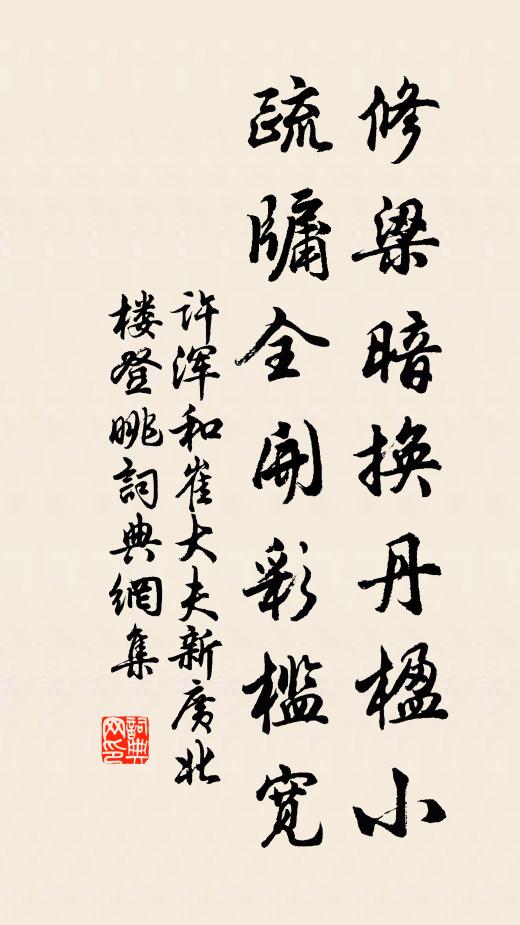 修梁暗换丹楹小
疏牖全開彩槛寛
许浑和崔大夫新廣北
楼登眺詞典網集
詞典
网印